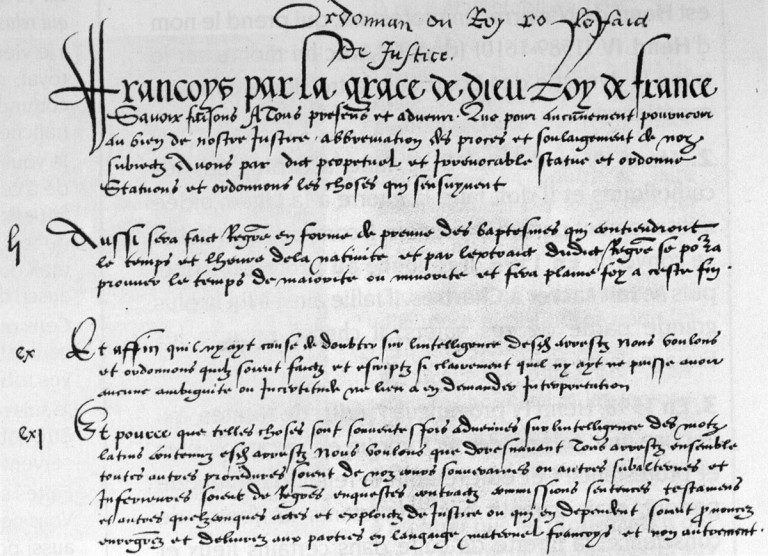 Ordonnan du Roy
De Justice.
Francoys par la grace de dieu Roy de france
Savoir faisons A Tous presens et advenir. Que pour aucunement pourveoir
au bien de nostre Justice, abbreviation des proces et soulagement de noz
subiectz Avons par dict perpetuel et Irrevocable statue et ordonne
Statuons et ordonnons les choses qui sensuyvent
Aussi sera faict Regre en forme de preuve des baptesmes qui contiendront
le temps et lheure dela nativite et par lextraict dudict Regre se pourra
prouver le temps de maiorite ou minorite et fera plaine foy a ceste fin.
cx Et affin quil ny ayt cause de doubter sur lintelligence desdz arrestz Nous voulons
et ordonnons quilz soient faictz et escriptz si clairement quil ny ayt ne puisse avoir
aucune ambiguite ou Incertitude ne lieu a en demander Interpretation
cxi Et pource que telles choses sont souventesfois advenues sur lintelligence des motz
latins contenuz esdz arrestz Nous voulons que doresnavant Tous arrestz ensemble
toutes autres procedures soient de noz cours souveraines ou autres subalternes et
Inferieures soient de Regres enquestes contractz commissions sentences testamens
et autres quelzconques actes et exploictz de Justice ou qui en dependent soient prononcez
enregrez et delivrez aux parties en langage maternel francoys et non autrement.